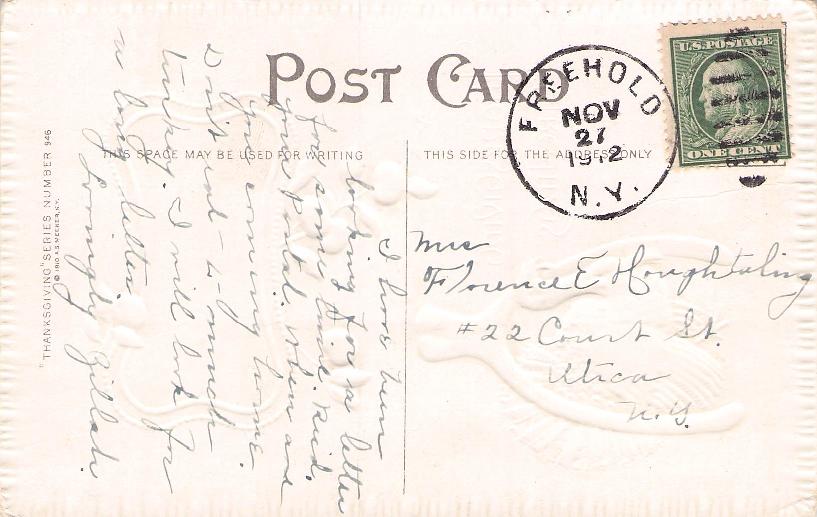 POST CARD
THIS SPACE MAY BE USED FOR WRITING
THIS SIDE FOR THE ADDRESS ONLY
FREEHOLD
NOV
27
1912
N.Y.
U.S. POSTAGE
ONE CENT
Florence E Houghtaling
#22 Court St.
Utica
N.Y.
I have been
looking for a letter
for some time. Recd.
your postal. When are
you coming home.
Don't eat to much
turkey. I will look for
a long letter.
Lovingly Zillah.
"THANKSGIVING" SERIES NUMBER 946
© 1910 A.S. MEEKER, N.Y.